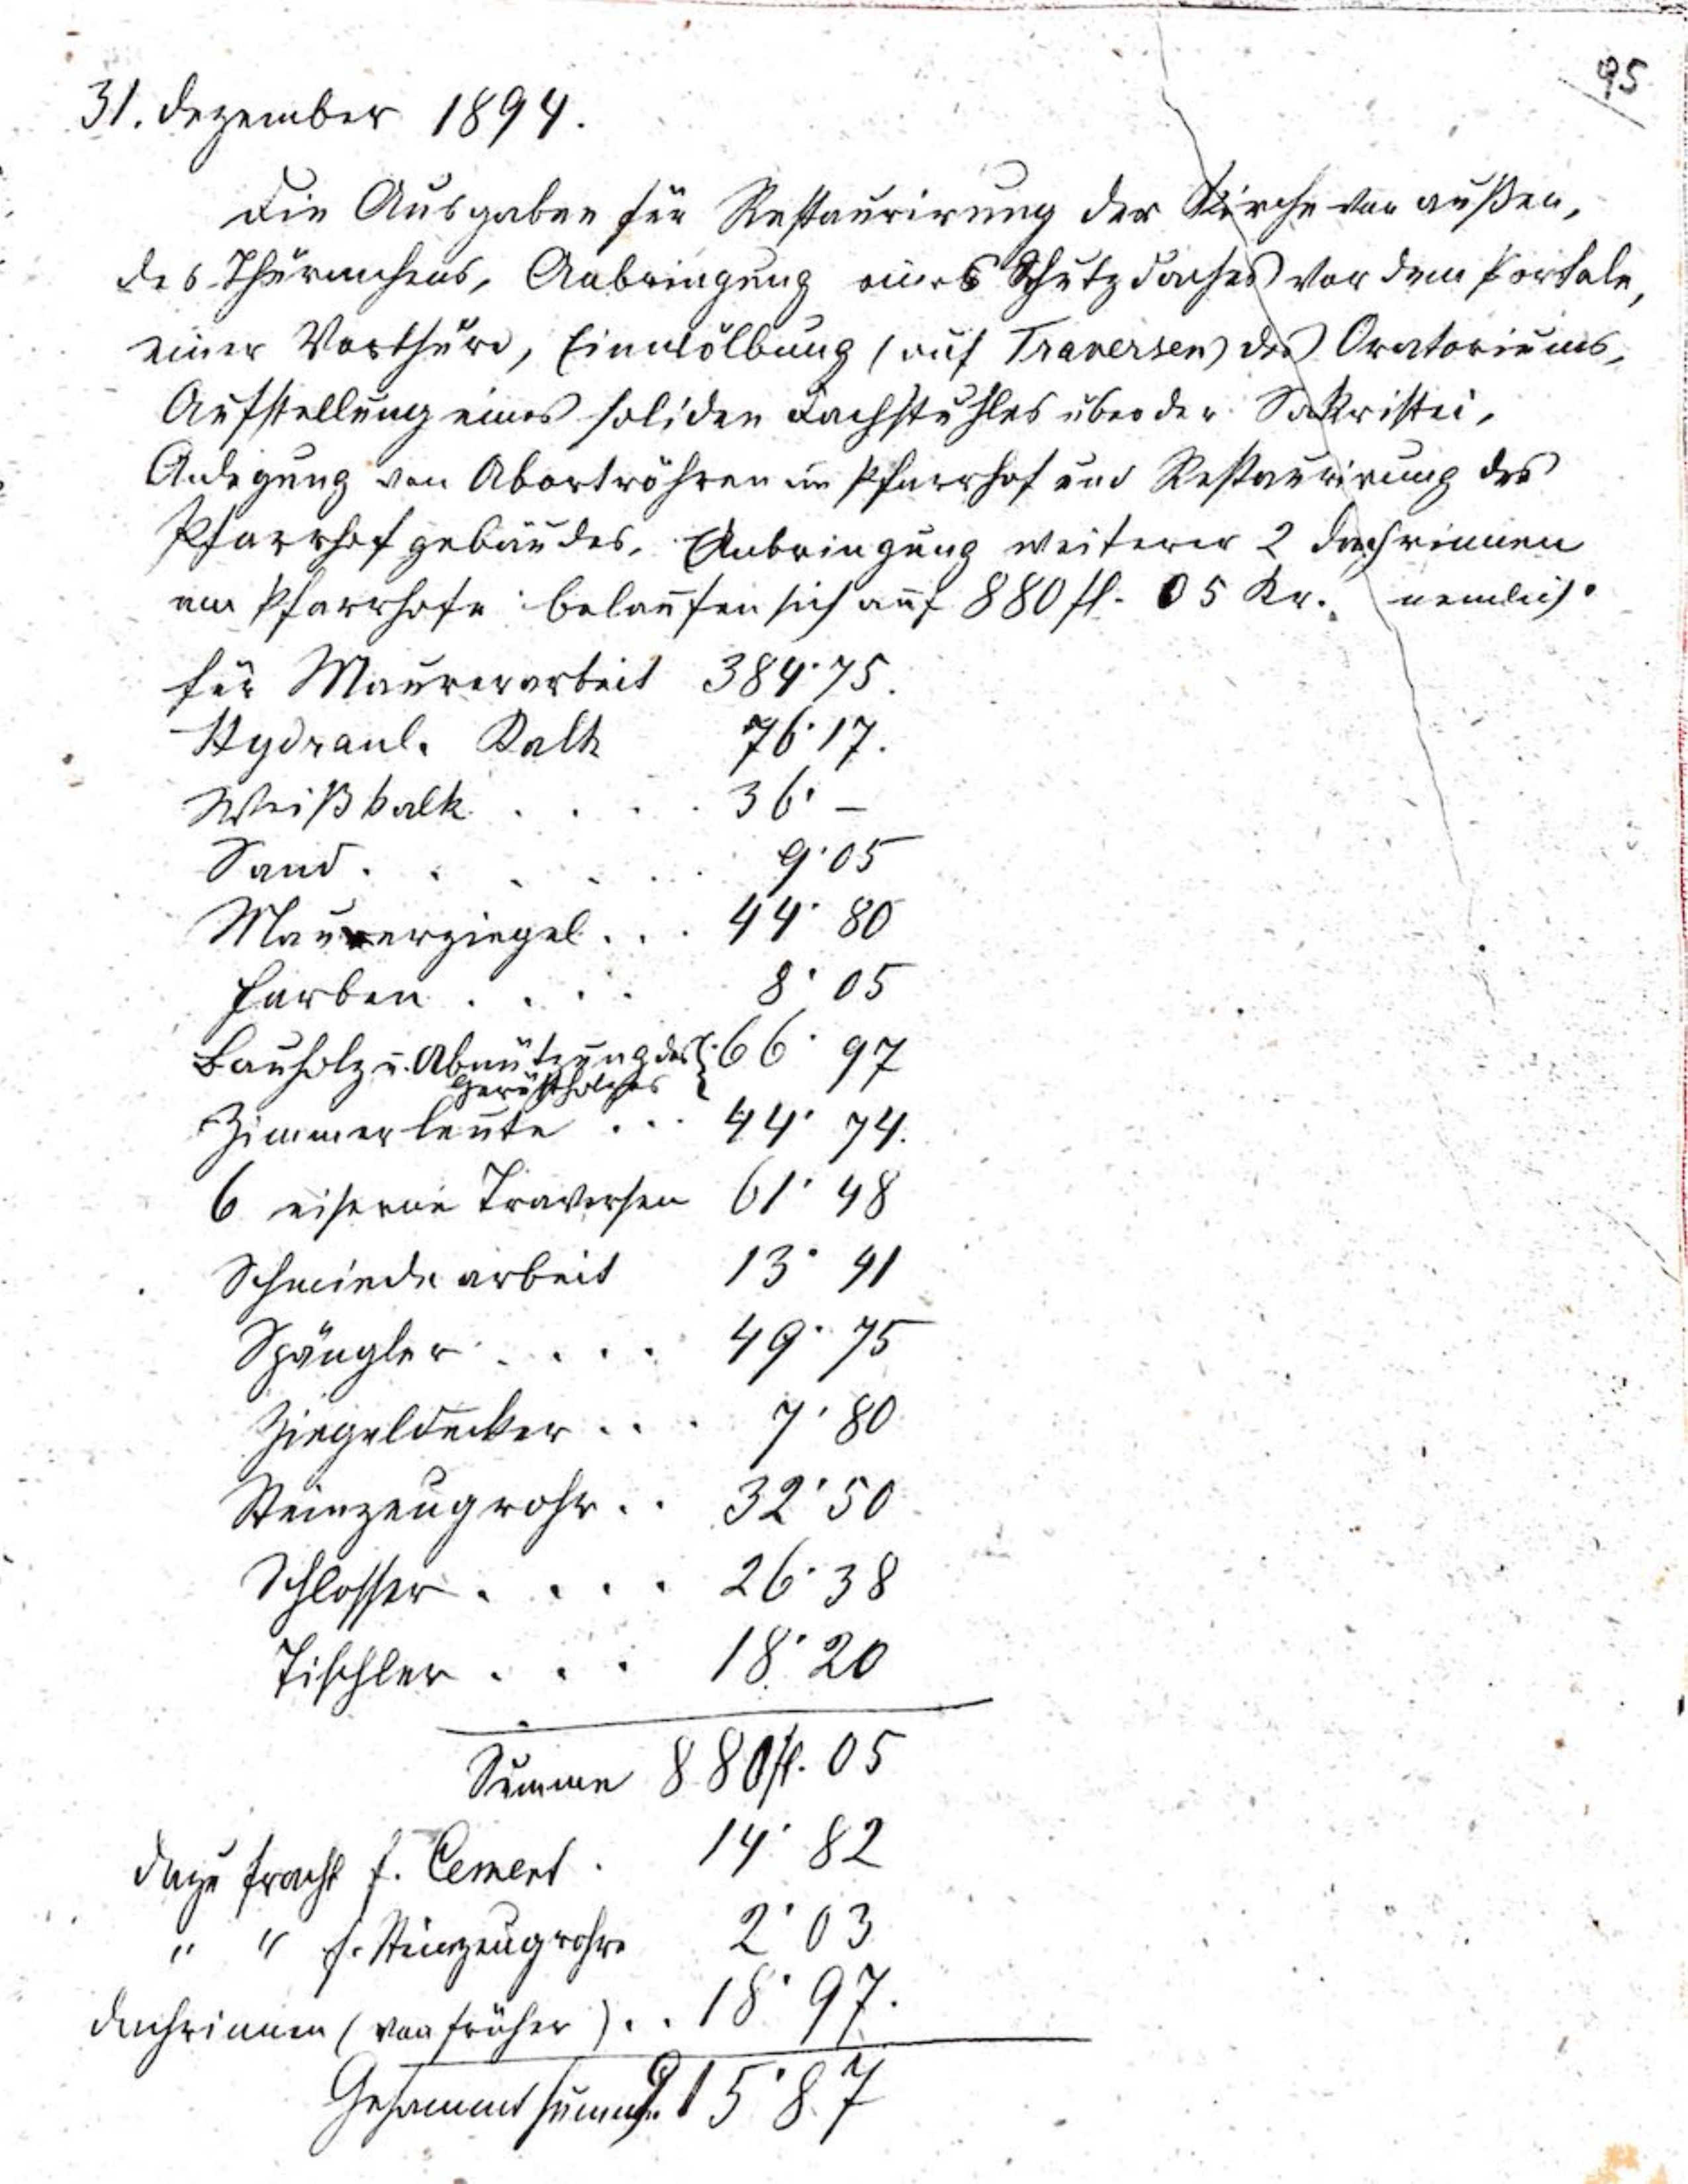 95
31. Dezember 1894.
Die Ausgaben für Restaurirung der Kirche von außen,
des Thürmchens, Anbringung eines Schutzdaches vor dem Portale,
einer Vorthüre, Einwölbung (auf Traversen) des Oratoriums,
Aufstellung eines soliden Dachstuhles über der Sakristei,
Anlegung von Abortröhren im Pfarrhof und Restaurirung des
Pfarrhofgebäudes, Anbringung weiterer 2 Dachrinnen
am Pfarrhofe belaufen sich auf 880 fl. 05 Kr. nemlich:
für Maurerarbeit 384·75.
Hydraul. Kalk 76·17.
Weißkalk . . . . 36·–
Sand . . . . . . 9·05
Maurerziegel . . . 44·80
Farben . . . . 8·05
Bauholz u. Abnützung des
Gerüstholzes } 66·97
Zimmerleute . . . 44·74.
6 eiserne Traversen 61·48
Schmiedearbeit 13·41
Spängler . . . . 49·75
Ziegeldecker . . . 7·80
Steinzeugrohr . . 32·50
Schlosser . . . . 26·38
Tischler . . . 18·20
Summe 880 fl. 05
dazu Fracht f. Cement . 14·82
" " f. Steinzeugrohre 2·03
Dachrinnen (von früher) . . 18·97.
Gesammtsumme 915·87